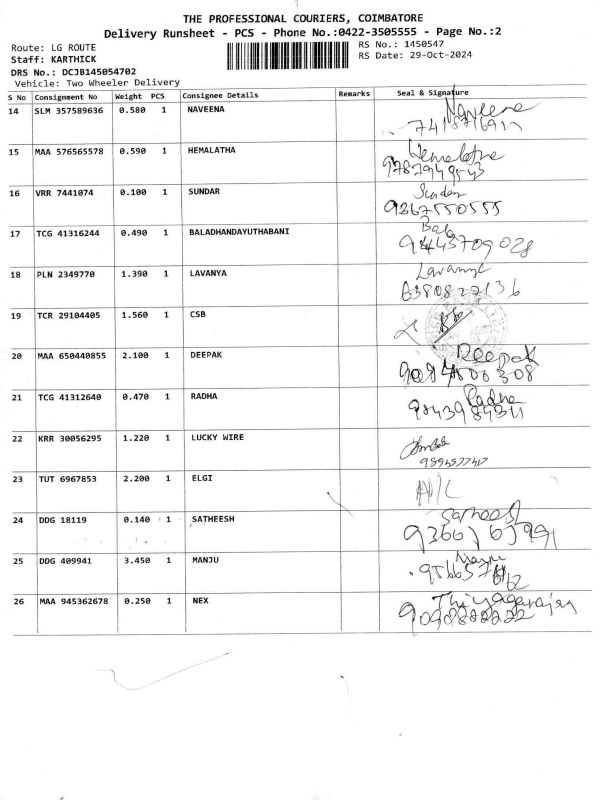 THE PROFESSIONAL COURIERS, COIMBATORE
Delivery Runsheet - PCS - Phone No.:0422-3505555 - Page No.:2
Route: LG ROUTE
RS No.: 1450547
Staff: KARTHICK
RS Date: 29-Oct-2024
DRS No.: DCJB145054702
Vehicle: Two Wheeler Delivery
S No Consignment No Weight PCS Consignee Details Remarks Seal & Signature
14 SLM 357589636 0.580 1 NAVEENA Naveena
15 MAA 576565578 0.590 1 HEMALATHA Hemalatha
16 VRR 7441074 0.100 1 SUNDAR Sundar
9367550555
17 TCG 41316244 0.490 1 BALADHANDAYUTHABANI Bala
9443709028
18 PLN 2349770 1.390 1 LAVANYA Lavanya
6380827136
19 TCR 29104405 1.560 1 CSB
20 MAA 650440855 2.100 1 DEEPAK Deepak
21 TCG 41312640 0.470 1 RADHA Radha
22 KRR 30056295 1.220 1 LUCKY WIRE
23 TUT 6967853 2.200 1 ELGI
24 DDG 18119 0.140 1 SATHEESH Satheesh
25 DDG 409941 3.450 1 MANJU Manju
26 MAA 945362678 0.250 1 NEX Thiyagarajan